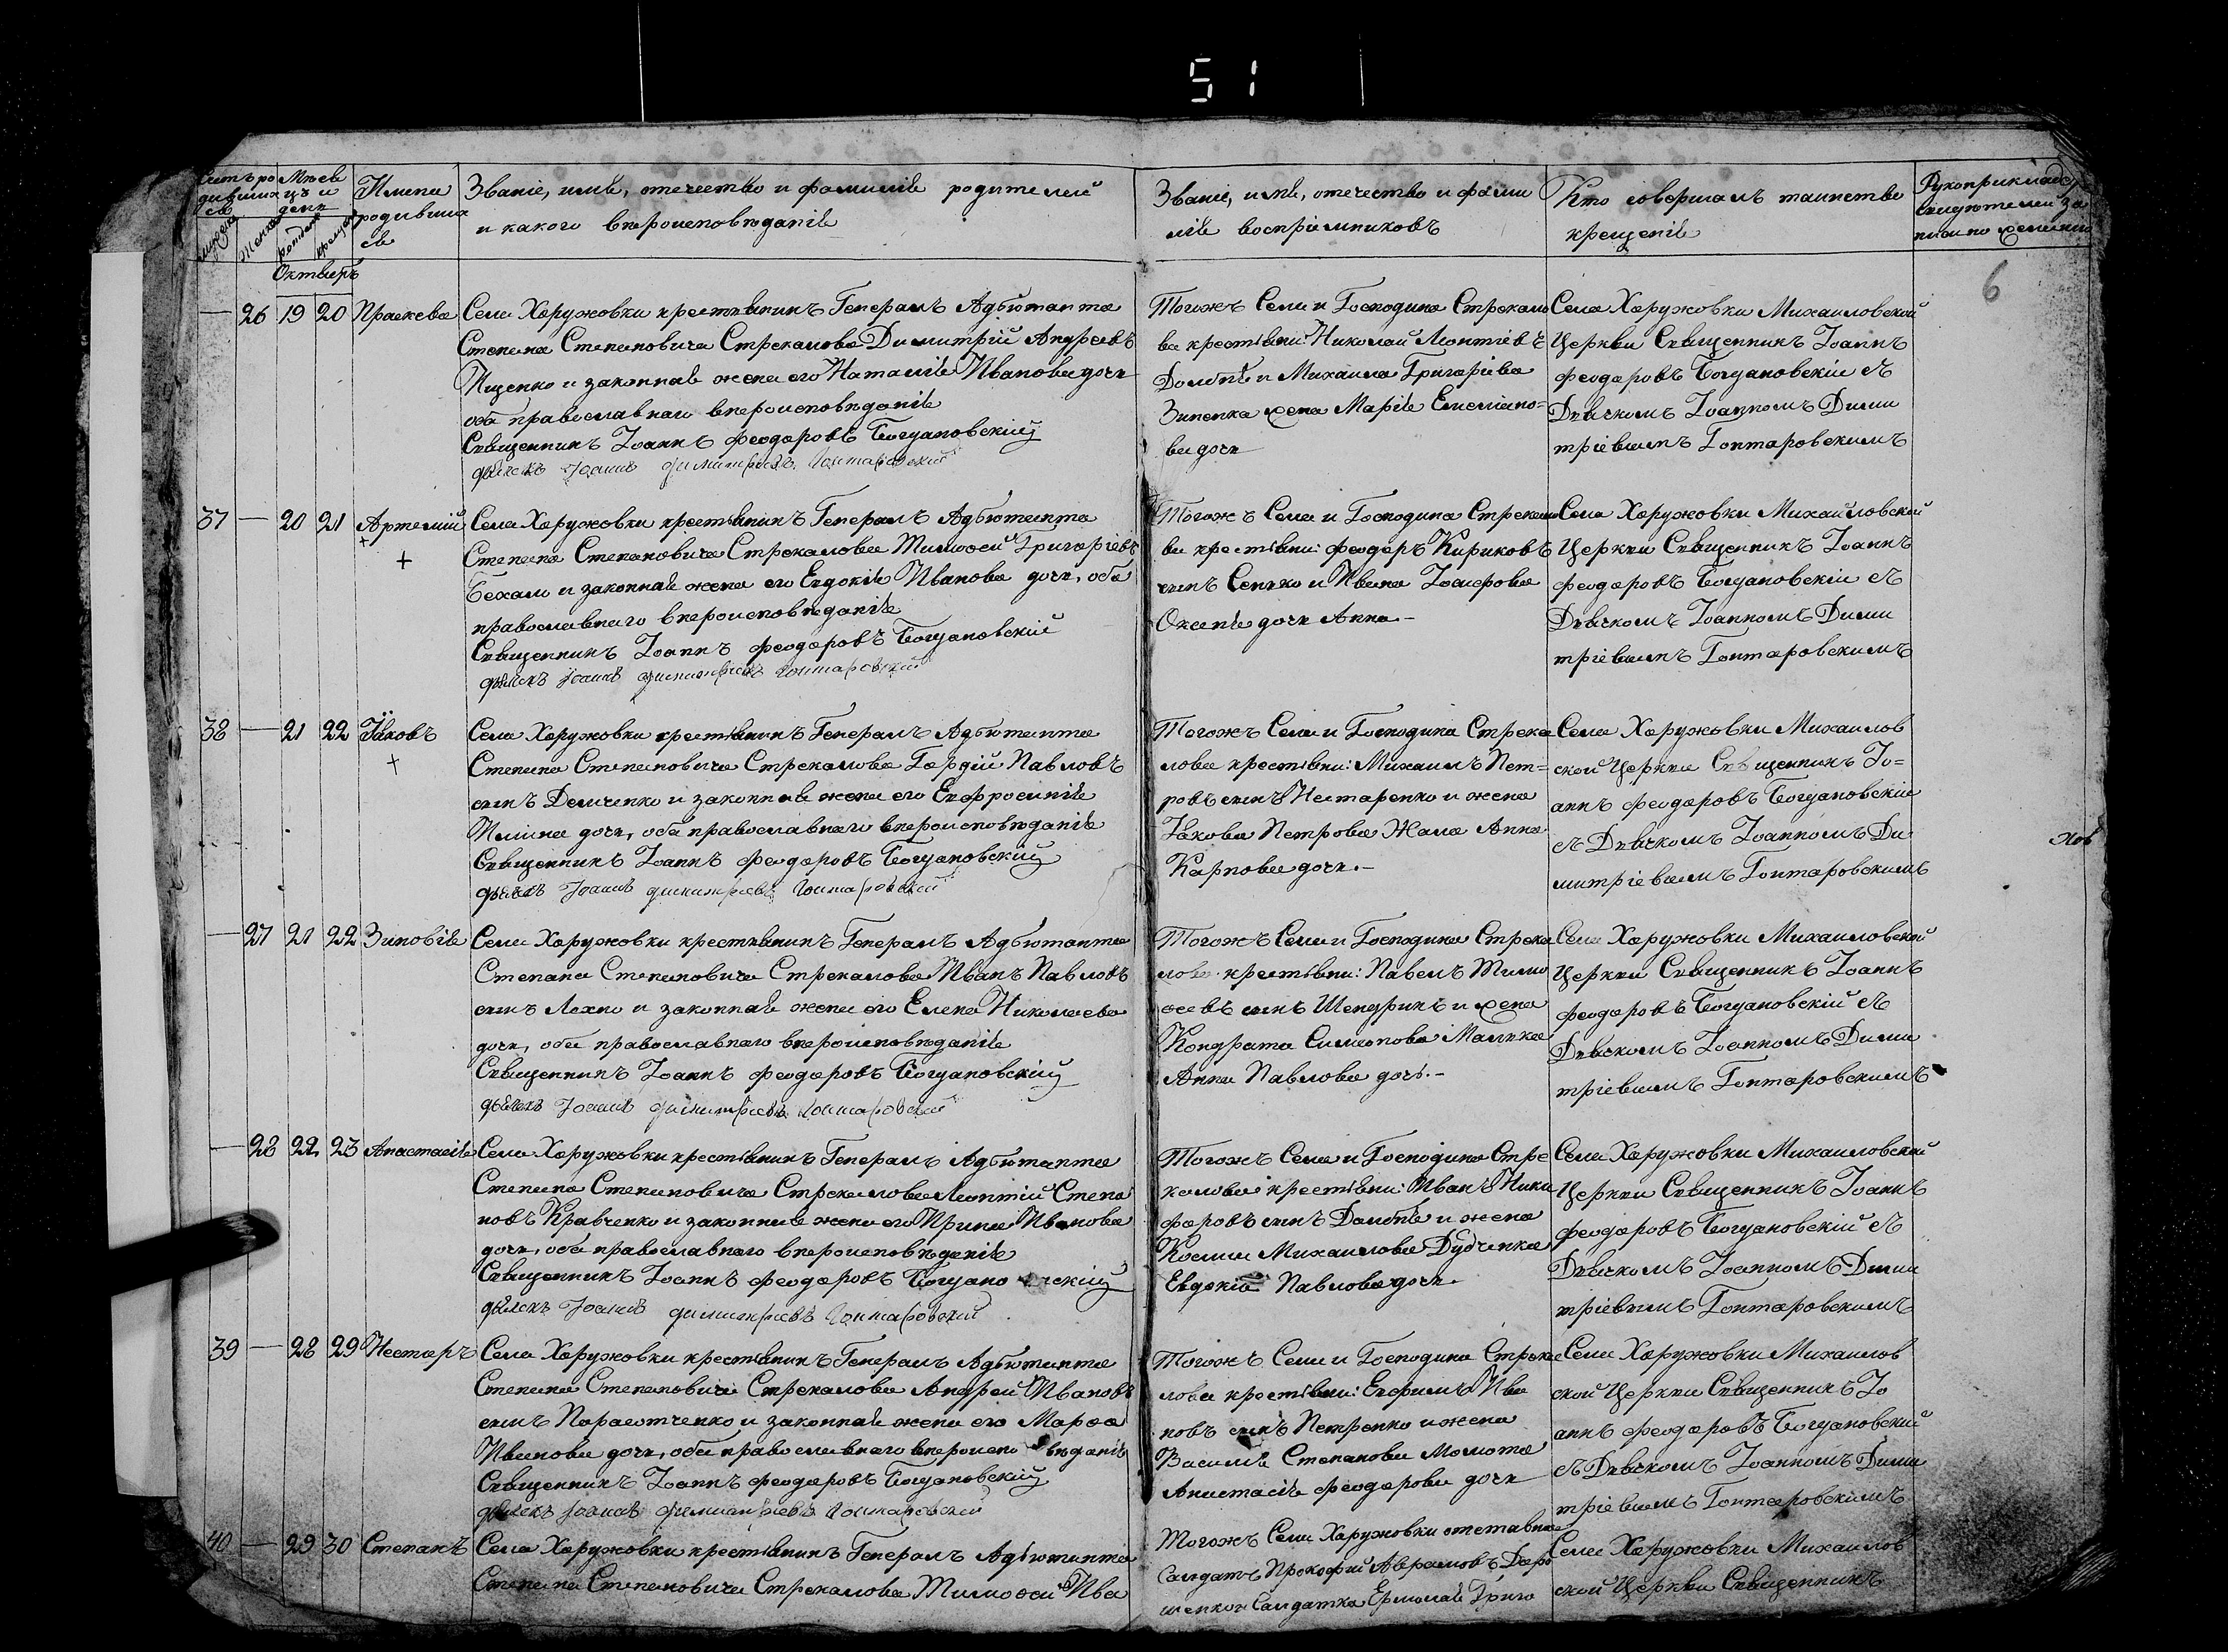 51
Счетъ ро
дивших
ся
Мѣся
цъ и
день
Имена
родивших
ся
Званіе, имя, отечество и фамилія родителей
и какого вѣроисповѣданія
Званіе, имя, отечество и фами
лія воспріемниковъ
Кто совершалъ таинство
крещенія
6
Октябрь
— 26 19 20 Праскева
Села Харужовки крестьянинъ Генералъ Адьютанта
Степана Степановича Стрекалова Димитрій Андреевъ
Ищенко и законная жена его Наталія Иванова дочь
оба православнаго вѣроисповѣданія
Священникъ Іоаннъ Феодоровъ Богдановскій
дьячекъ Іоаннъ Димитріевъ Гонтаровский
Тогожъ Села и Господина Стрекало
ва крестьяни: Николай Леонтіевъ
Долбня и Михаила Григоріева
Зиненка жена Марія Емеліано=
ва дочь
Села Харужовки Михаиловской
Церкви Священникъ Іоаннъ
Феодоровъ Богдановскій съ
Дьячкомъ Іоанномъ Дими
тріевымъ Гонтаровскимъ
37 — 20 21 Артемій
+
+
Села Харужовки крестьянинъ Генералъ Адьютанта
Степана Степановича Стрекалова Тимофей Григоріевъ
Бехало и законная жена его Евдокія Иванова дочь, оба
православнаго вѣроисповѣданія
Священникъ Іоаннъ Феодоровъ Богдановскій
дьячекъ Іоаннъ Димитріевъ Гонтаровский
Тогожъ Села и Господина Стрекало
ва крестьяни: Феодоръ Кириковъ
сынъ Сенько и Ивана
дочь Анна —
Села Харужовки Михайловской
Церкви Священникъ Іоаннъ
Феодоровъ Богдановскій съ
Дьячкомъ Іоанномъ Дими
тріевымъ Гонтаровскимъ
38 — 21 22 Іаковъ
+
Села Харужовки крестьянинъ Генералъ Адьютанта
Степана Степановича Стрекалова Гордій Павловъ
сынъ Демченко и законная жена его Евфросинія
дочь, оба православнаго вѣроисповѣданія
Священникъ Іоаннъ Феодоровъ Богдановский
дьячекъ Іоаннъ Димитріевъ Гонтаровский
Тогожъ Села и Господина Стрека
лова крестьяни: Михаилъ Пет=
ровъ сынъ Нестаренко и жена
Іакова Петрова Жала Анна
Карпова дочь. —
Села Харужовки Михаилов
ской Церкви Священникъ Іо=
аннъ Феодоровъ Богдановскій
съ Дьячкомъ Іоанномъ Ди
митріевымъ Гонтаровскимъ
лов
— 27 21 22 Зиновія
Села Харужовки крестьянинъ Генералъ Адьютанта
Степана Степановича Стрекалова Иванъ Павловъ
сынъ Лахно и законная жена его Елена Николаева
дочь, оба православнаго вѣроисповѣданія
Священникъ Іоаннъ Феодоровъ Богдановскій
дьячекъ Іоаннъ Димитріевъ Гонтаровский
Тогожъ Села и Господина Стрека
лова крестьяни: Павелъ Тимо
феевъ сынъ Шендрикъ и жена
Кондрата Симеонова Малька
Анна Павлова дочь. —
Села Харужовки Михаиловской
Церкви Священникъ Іоаннъ
Феодоровъ Богдановскій съ
Дьячкомъ Іоанномъ Дими
тріевымъ Гонтаровскимъ
— 28 22 23 Анастасія
Села Харужовки крестьянинъ Генералъ Адьютанта
Степана Степановича Стрекалова Леонтій Степа
новъ Кравченко и законная жена его Ирина Иванова
дочь, оба православнаго вѣроисповѣданія
Священникъ Іоаннъ Феодоровъ Богдановский
дьячекъ Іоаннъ Димитріевъ Гонтаровский
Тогожъ Села и Господина Стре
калова крестьяни: Иванъ Ники
форовъ сынъ Долбня и жена
Космы Михаилова Дудченка
Евдокія Павлова дочь.
Села Харужовки Михаиловской
Церкви Священникъ Іоаннъ
Феодоровъ Богдановскій съ
Дьячкомъ Іоанномъ Дими
тріевымъ Гонтаровскимъ
39 — 28 29 Несторъ
Села Харужовки крестьянинъ Генералъ Адьютанта
Степана Степановича Стрекалова Андрей Ивановъ
сынъ Парасотченко и законная жена его Марфа
Иванова дочь, оба православнаго вѣроисповѣданія
Священникъ Іоаннъ Феодоровъ Богдановский
дьячекъ Іоаннъ Димитріевъ Гонтаровский
Тогожъ Села и Господина Стрека
лова крестьяни: Ефримъ Ива
новъ сынъ Петренко и жена
Василія Степанова Момота
Анастасія Феодорова дочь
Села Харужовки Михаилов
ской Церкви Священникъ Іо
аннъ Феодоровъ Богдановский
съ Дьячкомъ Іоанномъ Дими
тріевымъ Гонтаровскимъ
40 — 29 30 Степанъ
Села Харужовки крестьянинъ Генералъ Адьютанта
Степана Степановича Стрекалова Тимофей Ива
Тогожъ Села Харужовки отставной
Салдатъ Прокофій Аврамовъ Даро
шенко и Салдатка Ермолая Григо
Села Харужовки Михаилов
ской Церкви Священникъ